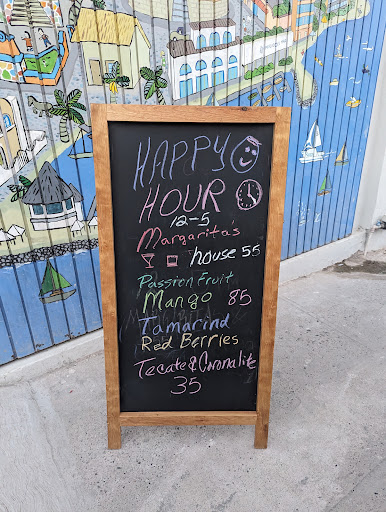 HAPPY
HOUR
12-5
Margarita's
house 55
Passion Fruit
Mango 85
Tamarind
Red Berries
Tecate & Corona lite
35